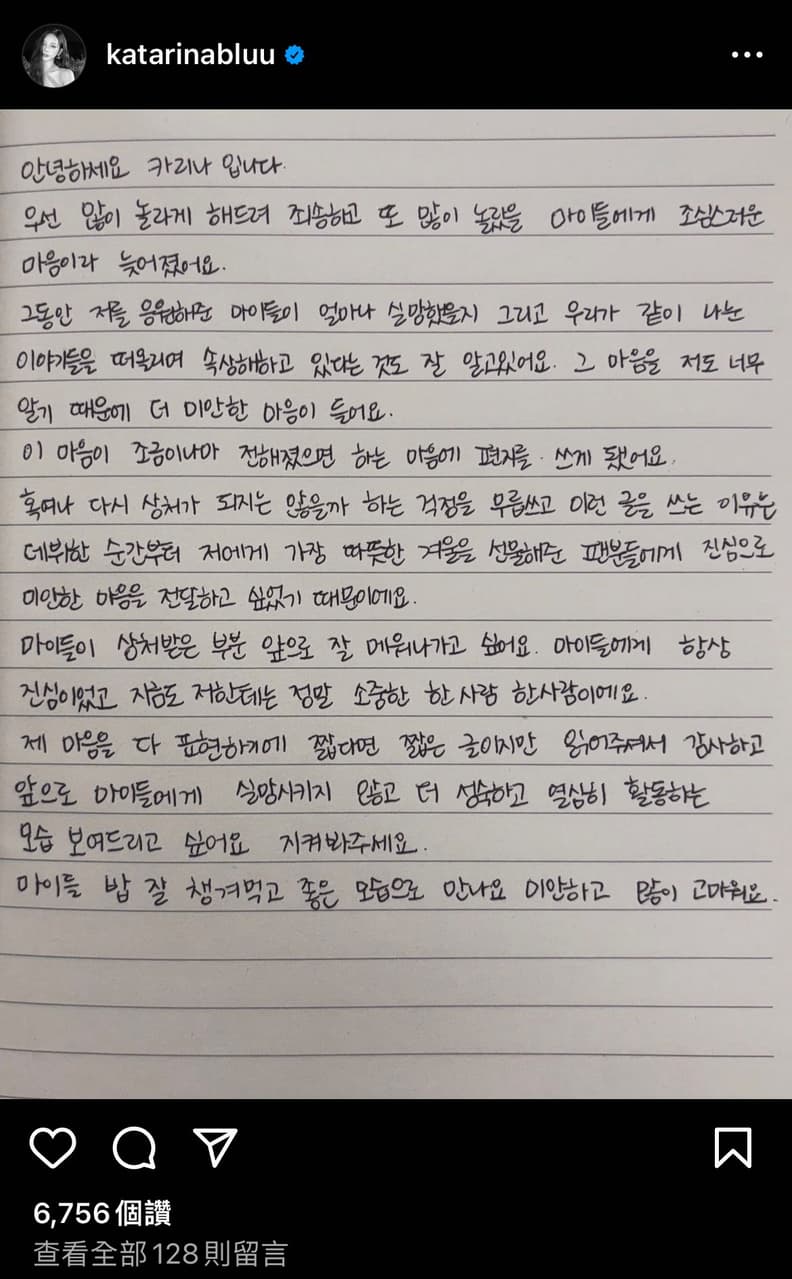 katarinabluu
안녕하세요 카리나 입니다.
우선 많이 놀라게 해드려 죄송하고 또 많이 놀랐을 마이들에게 조심스러운
마음이라 늦어졌어요.
그동안 저를 응원해준 마이들이 얼마나 실망했을지 그리고 우리가 같이 나눈
이야기들을 떠올리며 속상해하고 있다는 것도 잘 알고있어요. 그 마음을 저도 너무
알기 때문에 더 미안한 마음이 들어요.
이 마음이 조금이나마 전해졌으면 하는 마음에 편지를 쓰게 됐어요.
혹여나 다시 상처가 되지는 않을까 하는 걱정을 무릅쓰고 이런 글을 쓰는 이유는
데뷔한 순간부터 저에게 가장 따뜻한 겨울을 선물해준 팬분들에게 진심으로
미안한 마음을 전달하고 싶었기 때문이에요.
마이들이 상처받은 부분 앞으로 잘 메워나가고 싶어요. 마이들에게 항상
진심이었고 지금도 저한테는 정말 소중한 한 사람 한사람이에요.
제 마음을 다 표현하기에 짧다면 짧은 글이지만 읽어주셔서 감사하고
앞으로 마이들에게 실망시키지 않고 더 성숙하고 열심히 활동하는
모습 보여드리고 싶어요 지켜봐주세요.
마이들 밥 잘 챙겨먹고 좋은 모습으로 만나요 미안하고 많이 고마워요.
6,756 個讚
查看全部 128 則留言